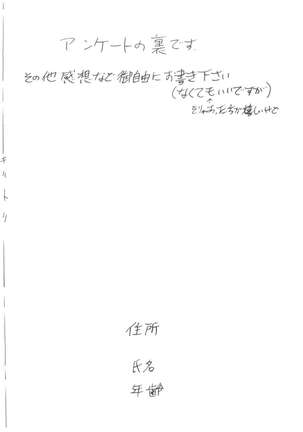 アンケートの裏です
その他感想など御自由にお書き下さい
(なくてもいいですが)
そりゃあったらが嬉しいけど
キリトリ
住所
氏名
年齢